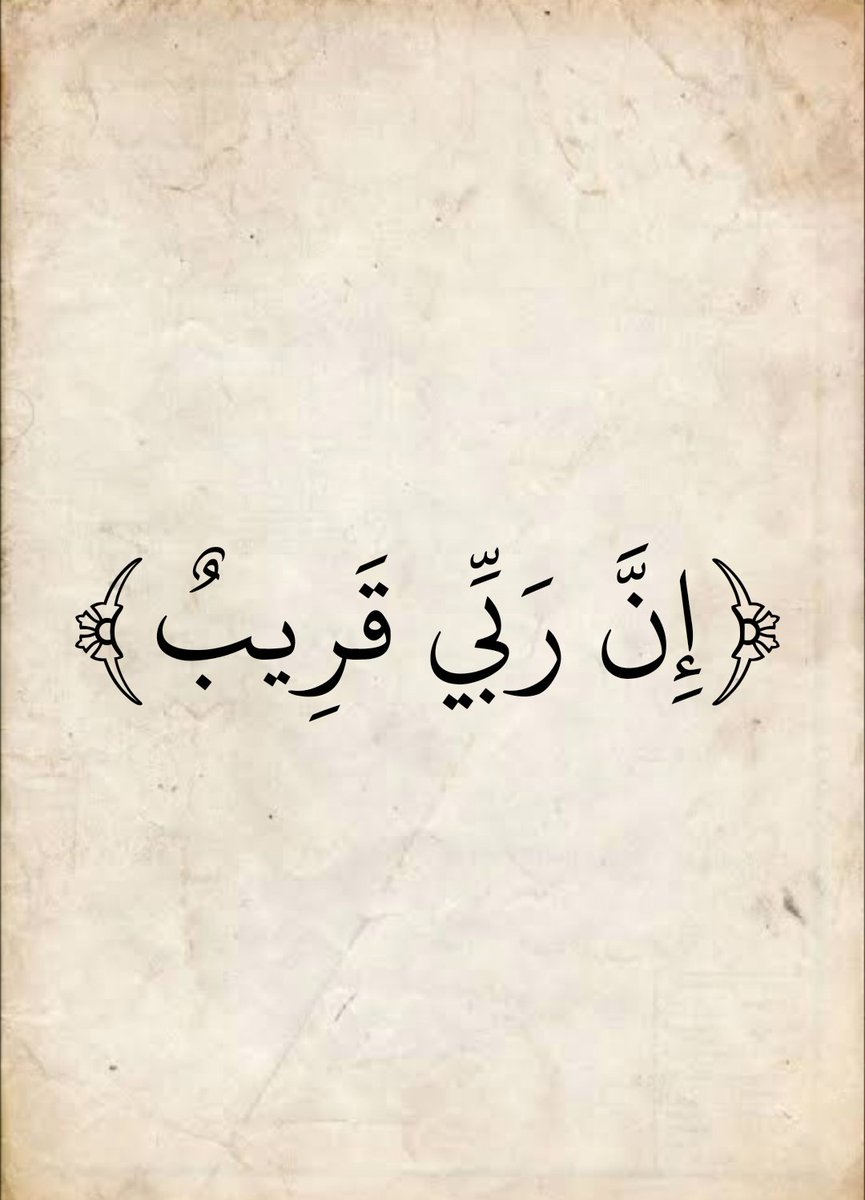 ﴿إِنَّ رَبِّي قَرِيبٌ﴾